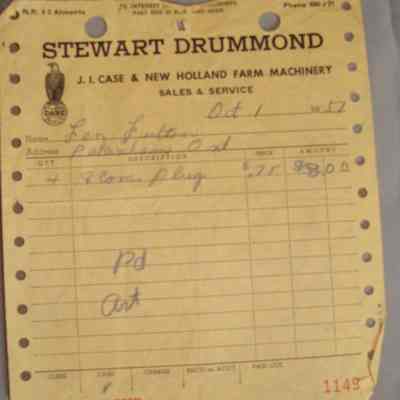 R.R. # 2 Almonte
Phone
STEWART DRUMMOND
J. I. CASE & NEW HOLLAND FARM MACHINERY
SALES & SERVICE
CASE
Oct 1 1957
Name Len Fulton
Address Pakenham Ont
QTY. DESCRIPTION PRICE AMOUNT
4 Plug $.75 $3.00
Pd
Art
CASH CHARGE PAID OUT
1149